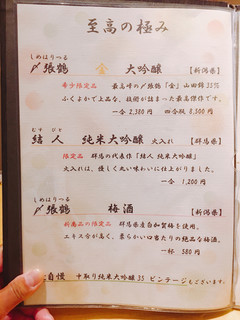 至高の極み
しめはりつる
〆張鶴 金 大吟醸 【新潟県】
希少限定品 最高峰の〆張鶴「金」山田錦35%
ふくよかで上品な、技術が詰まった最高傑作です。
一合 2,380円 四合瓶 8,500円
むすびと
結人 純米大吟醸 火入れ 【群馬県】
限定品 群馬の代表作「結人 純米大吟醸」
火入れは、優しく丸い味わいに仕上がりました。
一合 1,200円
しめはりつる
〆張鶴 梅酒 【新潟県】
新商品の限定品 群馬県産白加賀梅を使用。
エキス分が高く、柔らかい口当たりの絶品な梅酒。
一杯 580円
自慢 中取り純米大吟醸35 ビンテージもございます。